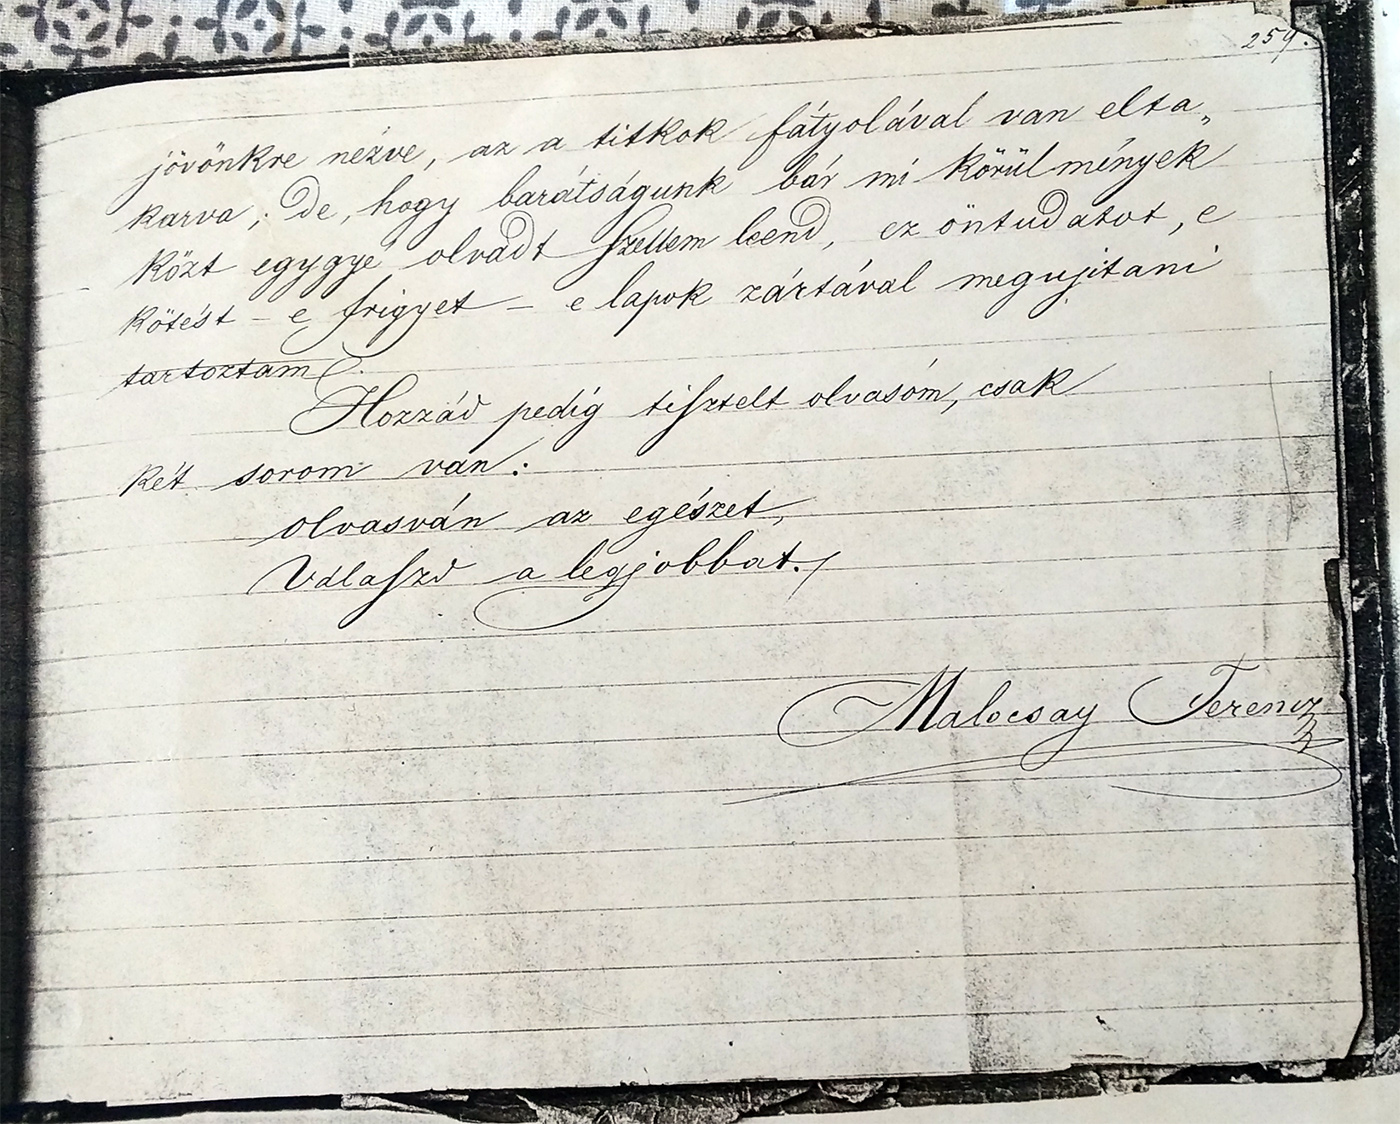 259.
jövönkre nézve, az a titkok fátyolával van elta„
karva; de, hogy barátságunk bár mi körülmények
közt egygyé olvadt szellem leend, ez öntudatot, e
kötést – e frigyet – e lapok zártával megujitani
tartoztam.
Hozzád pedig tisztelt olvasóm, csak
két sorom van:
olvasván az egészet,
Válaszd a legjobbat.
Malocsay Ferencz